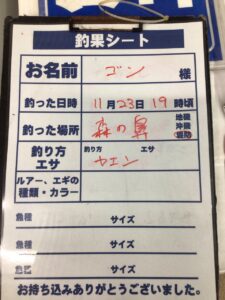 釣果シート
お名前 ゴン 様
釣った日時 11月23日 19時頃
釣った場所 森の鼻 地磯 沖磯 堤防
釣り方 エサ
釣り方 ヤエン エサ
ルアー、エギの種類・カラー
魚種 サイズ
魚種 サイズ
魚種 サイズ
お持ち込みありがとうございました。